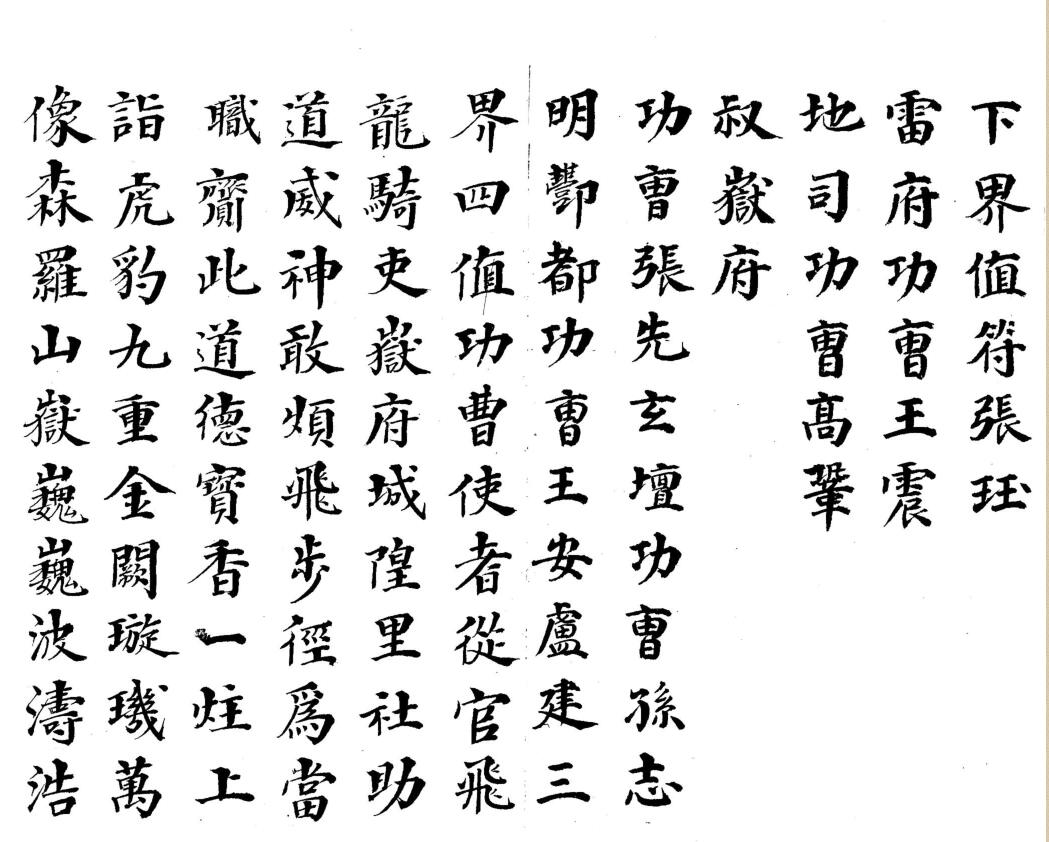 下界值符張珏
雷府功曹王震
地司功曹髙鞏
叔嶽府
功曹張先玄壇功曹孫志
明酆都功曹王安盧建三
界四值功曹使者從官飛
龍騎吏嶽府城隍里社助
道威神敢煩飛步徑為當
職齎此道德寶香一炷上
詣虎豹九重金闕璇璣萬
像森羅山嶽巍巍波濤浩